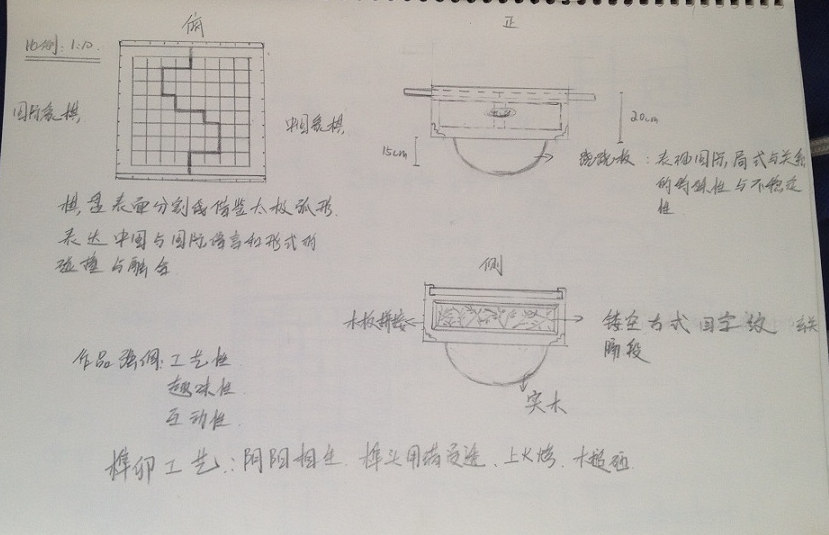 俯
正
比例:1:10.
国际象棋
中国象棋
20cm
15cm
跷跷板:表现国际局式与关系
的特殊性与不稳定
性
棋盘表面分割线借鉴太极弧形.
表达中国与国际语言和形式的
碰撞与融合
侧
木板拼接
镂空古式回字纹
阶段
作品强调:工艺性
趣味性
互动性
实木
榫卯工艺:阴阳相生.榫头用
上火烤.